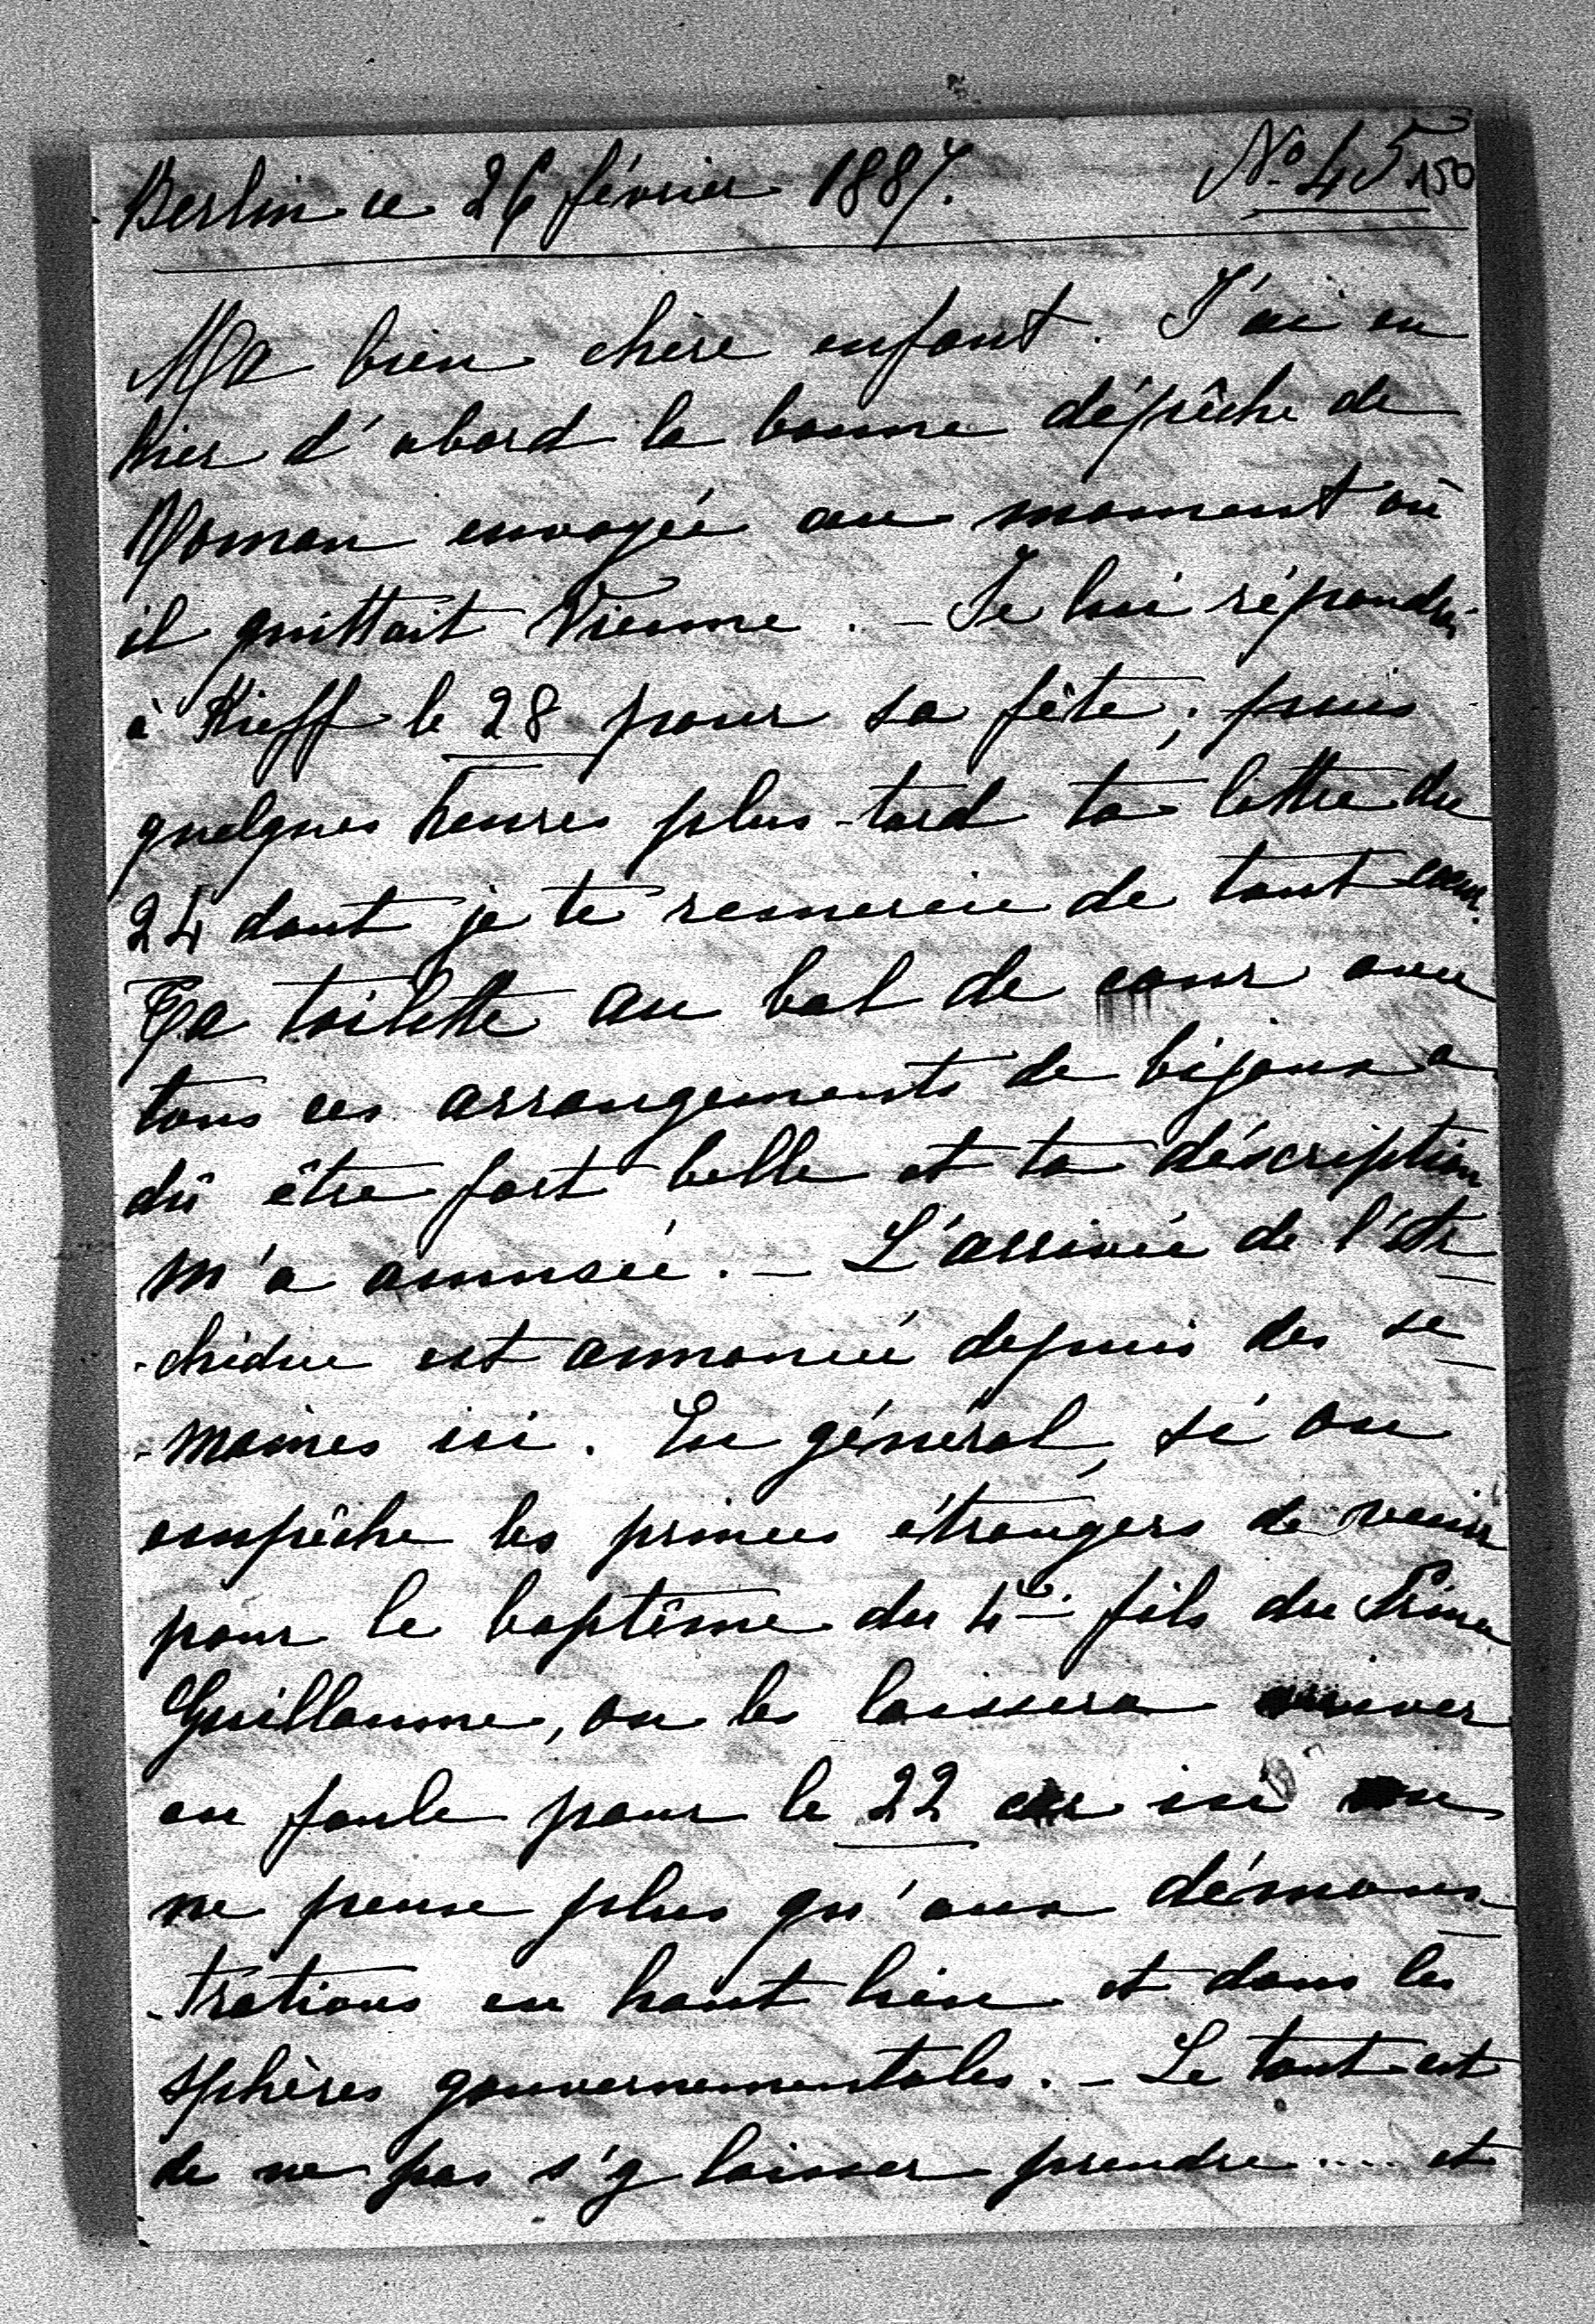 Berlin ce 26 février 1887. No. 45 150
Ma bien chère enfant. J'ai eu
hier d'abord la bonne dépêche de
Roman envoyée au moment où
il quittait Vienne. – Je lui répondrai
à Kieff le 28 pour sa fête; puis
quelques heures plus tard ta lettre du
24 dont je te remercie de tout coeur.
Ta toilette au bal de cour avec
tous ces arrangements de bijoux a
dû être fort belle et ta déscription
m'a amusée. – L'arrivée de l'Ar-
-chiduc est annoncée depuis des se-
-maines ici. En général, si on
empêche les princes étrangers de venir
pour le baptême du 4me fils du Prince
Guillaume, on les laissera arriver
en foule pour le 22 car ici on
ne pense plus qu'aux démons-
-trations en haut lieu et dans les
sphères gouvernementales. – Le tout est
de ne pas s'y laisser prendre.... et